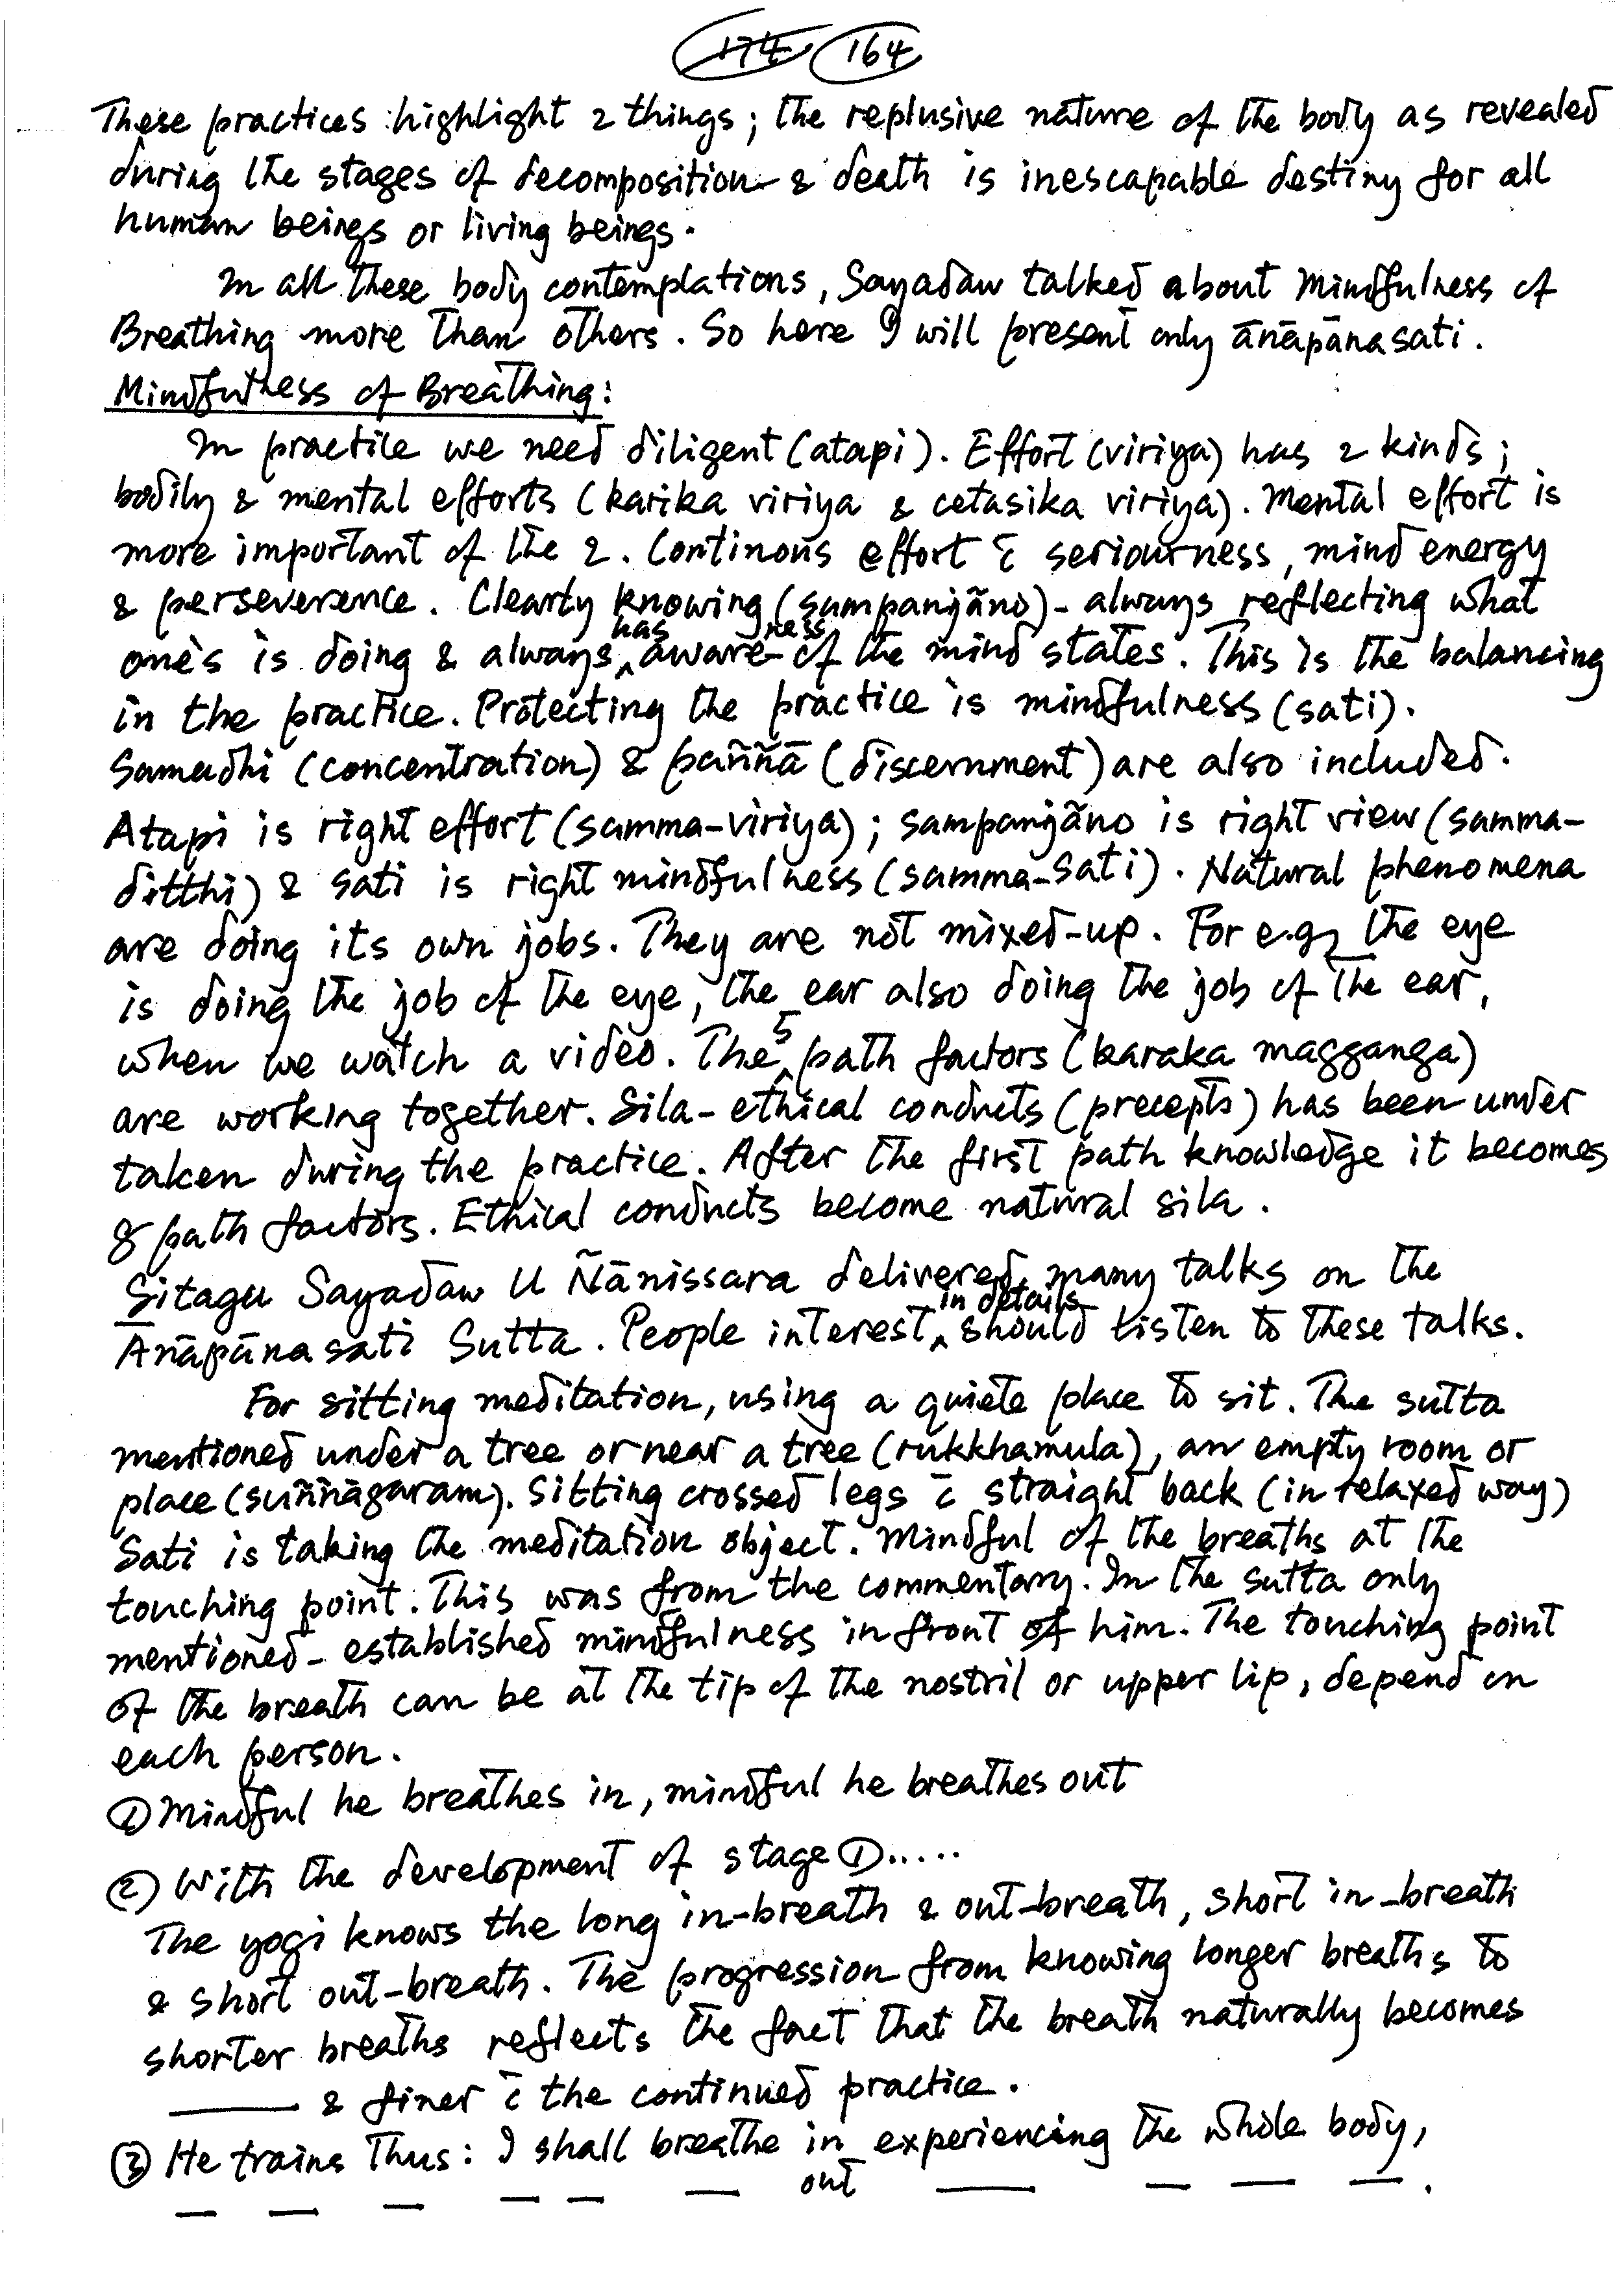 174 164
These practices highlight 2 things; the replusive nature of the body as revealed
during the stages of decomposition & death is inescapable destiny for all
human beings or living beings.
In all these body contemplations, Sayadaw talked about Mindfulness of
Breathing more than others. So here I will present only ānāpānasati.
Mindfulness of Breathing:
In practice we need diligent (atapi). Effort (viriya) has 2 kinds;
bodily & mental efforts (karika viriya & cetasika viriya). Mental effort is
more important of the 2. Continous effort c̄ seriourness, mind energy
& perseverence. Clearly knowing (sampanjāno) - always reflecting what
one's is doing & always has awareness of the mind states. This is the balancing
in the practice. Protecting the practice is mindfulness (sati).
Samadhi (concentration) & paññā (discernment) are also included.
Atapi is right effort (samma-viriya); sampanjāno is right view (samma-
ditthi) & sati is right mindfulness (samma-sati). Natural phenomena
are doing its own jobs. They are not mixed-up. For e.g, the eye
is doing the job of the eye, the ear also doing the job of the ear,
when we watch a video. The 5 path factors (karaka magganga)
are working together. Sila - ethical conducts (precepts) has been under
taken during the practice. After the first path knowledge it becomes
8 path factors. Ethical conducts become natural sila.
Sitagu Sayadaw U Ñānissara delivered many talks on the
Ānāpānasati Sutta. People interest in details should listen to these talks.
For sitting meditation, using a quiete place to sit. The sutta
mentioned under a tree or near a tree (rukkhamula), an empty room or
place (suññāgaram). Sitting crossed legs c̄ straight back (in relaxed way)
Sati is taking the meditation object. Mindful of the breaths at the
touching point. This was from the commentary. In the sutta only
mentioned - established mindfulness in front of him. The touching point
of the breath can be at the tip of the nostril or upper lip, depend on
each person.
① Mindful he breathes in, mindful he breathes out
② With the development of stage ①.....
The yogi knows the long in-breath & out-breath, short in-breath
& short out-breath. The progression from knowing longer breaths to
shorter breaths reflects the fact that the breath naturally becomes
——— & finer c̄ the continued practice.
③ He trains thus: I shall breathe in experiencing the whole body,
— — — — — — out — — — —.